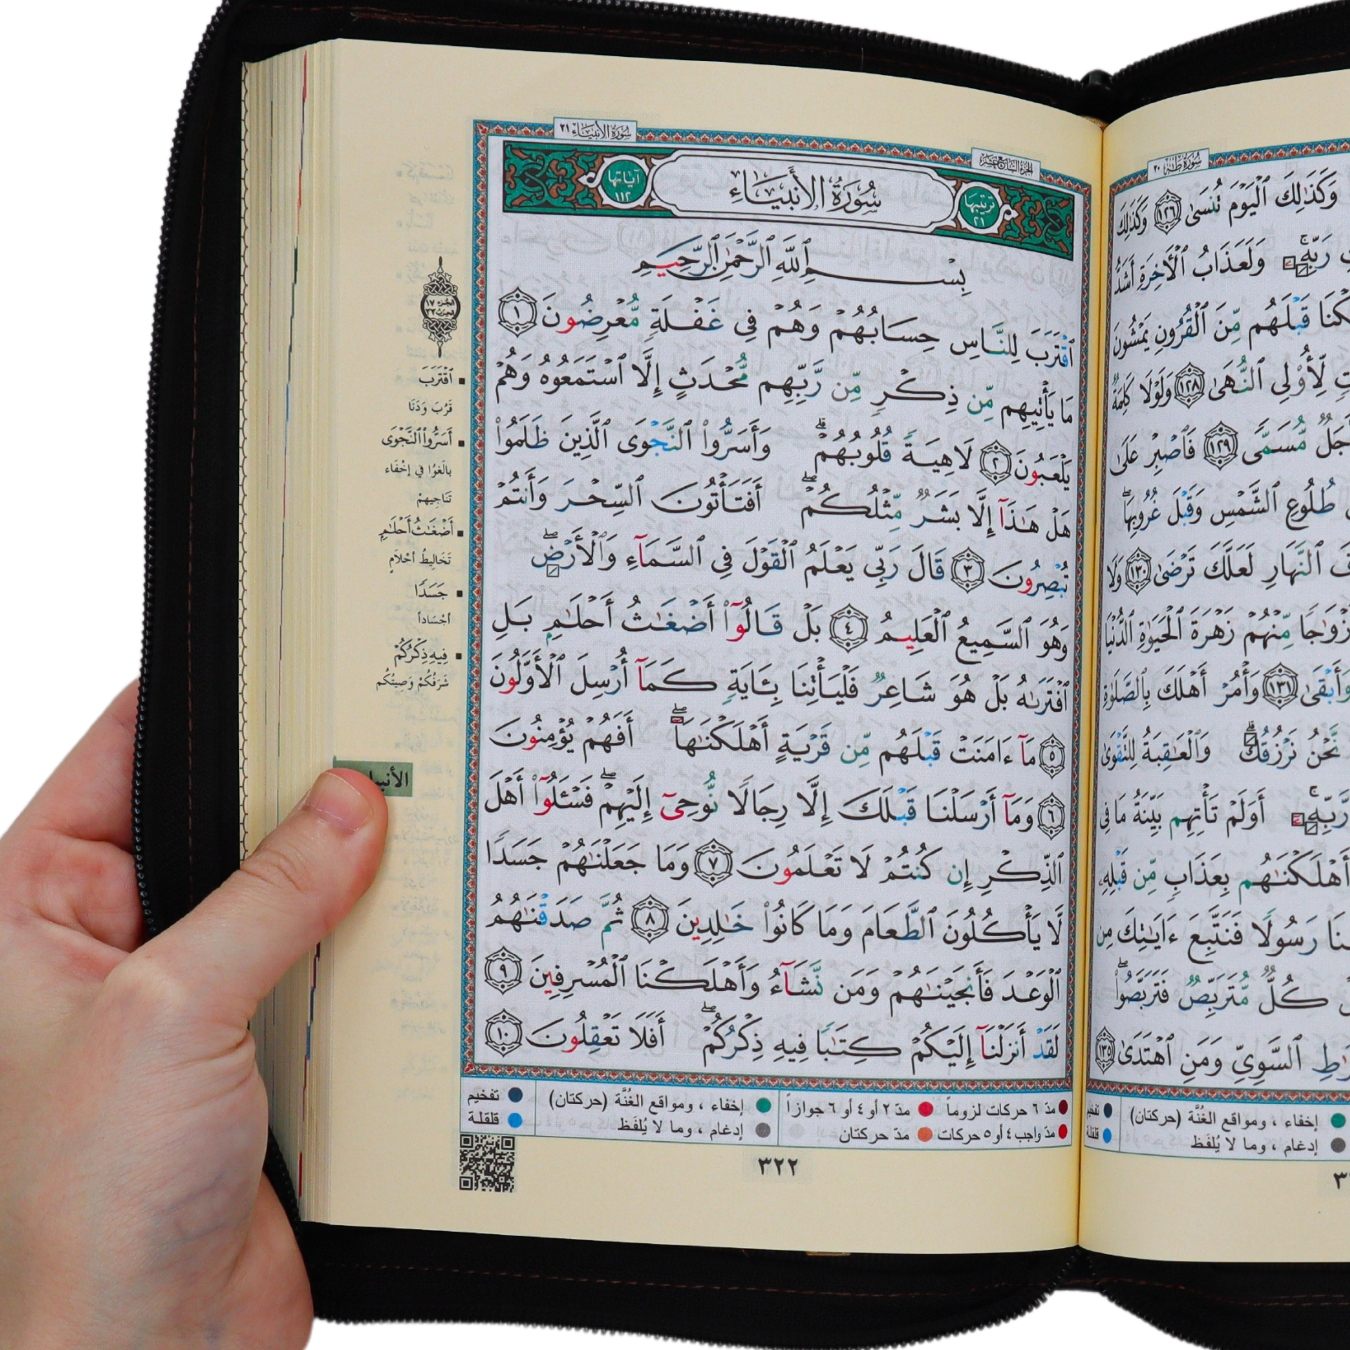 سورة طه ٢٠
وَكَذَٰلِكَ ٱلْيَوْمَ تُنسَىٰ ١٢٦ وَكَذَٰلِكَ
رَبِّهِۦ ۚ وَلَعَذَابُ ٱلْأَخِرَةِ أَشَدُّ
قَبْلَهُم مِّنَ ٱلْقُرُونِ يَمْشُونَ
لِّأُو۟لِى ٱلنُّهَىٰ ١٢٨ وَلَوْلَا كَلِمَةٌ
مُّسَمًّى ١٢٩ فَٱصْبِرْ عَلَىٰ
طُلُوعِ ٱلشَّمْسِ وَقَبْلَ غُرُوبِهَا ۖ
ٱلنَّهَارِ لَعَلَّكَ تَرْضَىٰ ١٣٠ وَلَا
مِّنْهُمْ زَهْرَةَ ٱلْحَيَوٰةِ ٱلدُّنْيَا
وَأَبْقَىٰ ١٣١ وَأْمُرْ أَهْلَكَ بِٱلصَّلَوٰةِ
نَّحْنُ نَرْزُقُكَ ۗ وَٱلْعَـٰقِبَةُ لِلتَّقْوَىٰ
رَبِّهِۦٓ ۚ أَوَلَمْ تَأْتِهِم بَيِّنَةُ مَا فِى
أَهْلَكْنَـٰهُم بِعَذَابٍ مِّن قَبْلِهِۦ
رَسُولًا فَنَتَّبِعَ ءَايَـٰتِكَ مِن
كُلٌّ مُّتَرَبِّصٌ فَتَرَبَّصُوا۟ ۖ
ٱلسَّوِىِّ وَمَنِ ٱهْتَدَىٰ ١٣٥
إخفاء ، ومواقع الغُنَّة (حركتان)
إدغام ، وما لا يُلفَظ
قلقلة
الجزء السابع عشر
سورة الأنبياء ٢١
ترتيبها ٢١
سُورَةُ الأَنبِيَاءِ
آياتها ١١٢
بِسْمِ ٱللَّهِ ٱلرَّحْمَـٰنِ ٱلرَّحِيمِ
ٱقْتَرَبَ لِلنَّاسِ حِسَابُهُمْ وَهُمْ فِى غَفْلَةٍ مُّعْرِضُونَ ١
مَا يَأْتِيهِم مِّن ذِكْرٍ مِّن رَّبِّهِم مُّحْدَثٍ إِلَّا ٱسْتَمَعُوهُ وَهُمْ
يَلْعَبُونَ ٢ لَاهِيَةً قُلُوبُهُمْ ۗ وَأَسَرُّوا۟ ٱلنَّجْوَى ٱلَّذِينَ ظَلَمُوا۟
هَلْ هَـٰذَآ إِلَّا بَشَرٌ مِّثْلُكُمْ ۖ أَفَتَأْتُونَ ٱلسِّحْرَ وَأَنتُمْ
تُبْصِرُونَ ٣ قَالَ رَبِّى يَعْلَمُ ٱلْقَوْلَ فِى ٱلسَّمَآءِ وَٱلْأَرْضِ ۖ
وَهُوَ ٱلسَّمِيعُ ٱلْعَلِيمُ ٤ بَلْ قَالُوٓا۟ أَضْغَـٰثُ أَحْلَـٰمٍۭ بَلِ
ٱفْتَرَىٰهُ بَلْ هُوَ شَاعِرٌ فَلْيَأْتِنَا بِـَٔايَةٍ كَمَآ أُرْسِلَ ٱلْأَوَّلُونَ
٥ مَآ ءَامَنَتْ قَبْلَهُم مِّن قَرْيَةٍ أَهْلَكْنَـٰهَآ ۖ أَفَهُمْ يُؤْمِنُونَ
٦ وَمَآ أَرْسَلْنَا قَبْلَكَ إِلَّا رِجَالًا نُّوحِىٓ إِلَيْهِمْ ۖ فَسْـَٔلُوٓا۟ أَهْلَ
ٱلذِّكْرِ إِن كُنتُمْ لَا تَعْلَمُونَ ٧ وَمَا جَعَلْنَـٰهُمْ جَسَدًا
لَّا يَأْكُلُونَ ٱلطَّعَامَ وَمَا كَانُوا۟ خَـٰلِدِينَ ٨ ثُمَّ صَدَقْنَـٰهُمُ
ٱلْوَعْدَ فَأَنجَيْنَـٰهُمْ وَمَن نَّشَآءُ وَأَهْلَكْنَا ٱلْمُسْرِفِينَ ٩
لَقَدْ أَنزَلْنَآ إِلَيْكُمْ كِتَـٰبًا فِيهِ ذِكْرُكُمْ ۖ أَفَلَا تَعْقِلُونَ ١٠
الجزء ١٧
اقْتَرَبَ
قَرُبَ وَدَنَا
أَسَرُّوا۟ ٱلنَّجْوَى
بالَغُوا في إخْفَاء
تَنَاجِيهِمْ
أَضْغَـٰثُ أَحْلَـٰمٍ
تَخَالِيطُ أحْلَامٍ
جَسَدًا
أجْسَاداً
فِيهِ ذِكْرُكُمْ
شَرَفُكُمْ وَصِيتُكُم
مدّ ٦ حركات لزوماً مدّ ٢ أو ٤ أو ٦ جوازاً إخفاء ، ومواقع الغُنَّة (حركتان) تفخيم
مدّ واجب ٤ أو ٥ حركات مدّ حركتان إدغام ، وما لا يُلفَظ قلقلة
٣٢٢